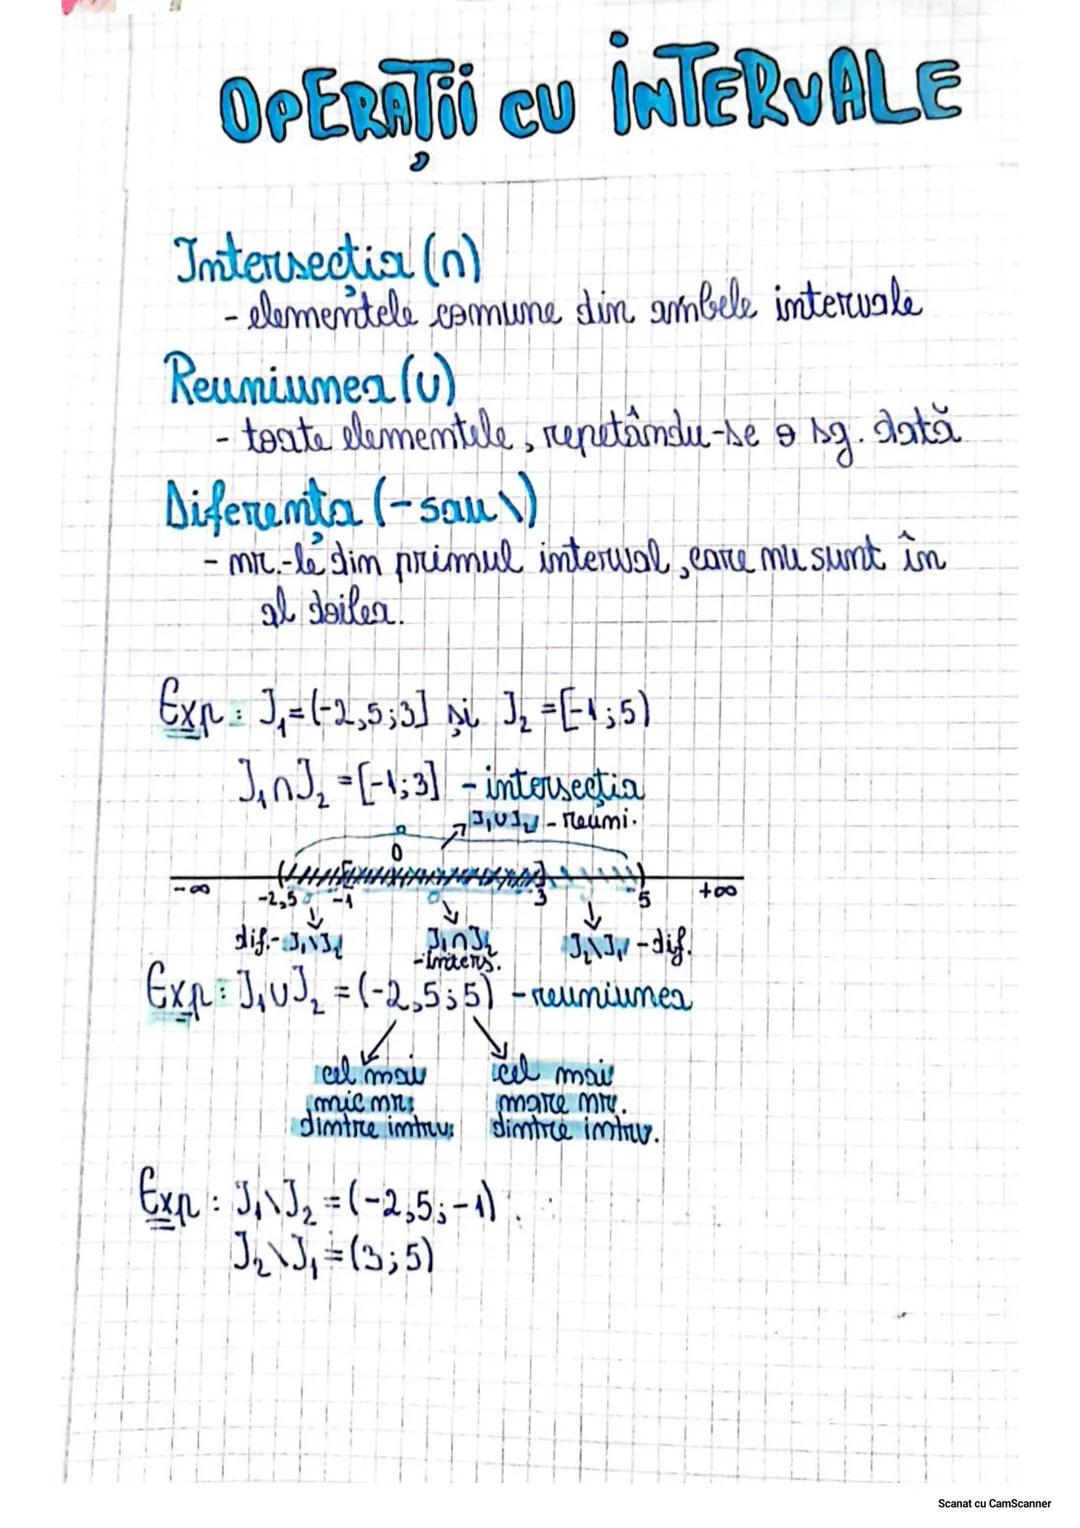 OPERAȚII CU INTERVALE
Intersecția (∩)
- elementele comune din ambele intervale
Reuniunea (∪)
- toate elementele, repetându-se o sg. dată
Diferența (- sau \)
- nr.-le din primul interval, care nu sunt în
al doilea.
Exp: J₁=(-2,5;3] și J₂=[-1;5)
J₁∩J₂=[-1;3] - intersecția
J₁∪J₂ - reuni.
0
-∞ -2,5 -1 3 5 +∞
dif.- J₁\J₂ J₁∩J₂ J₂\J₁ - dif.
- inters.
Exp: J₁∪J₂=(-2,5;5) - reuniunea
cel mai cel mai
mic nr. mare nr.
dintre intrv. dintre intrv.
Exp: J₁\J₂=(-2,5;-1)
J₂\J₁=(3;5)
Scanat cu CamScanner